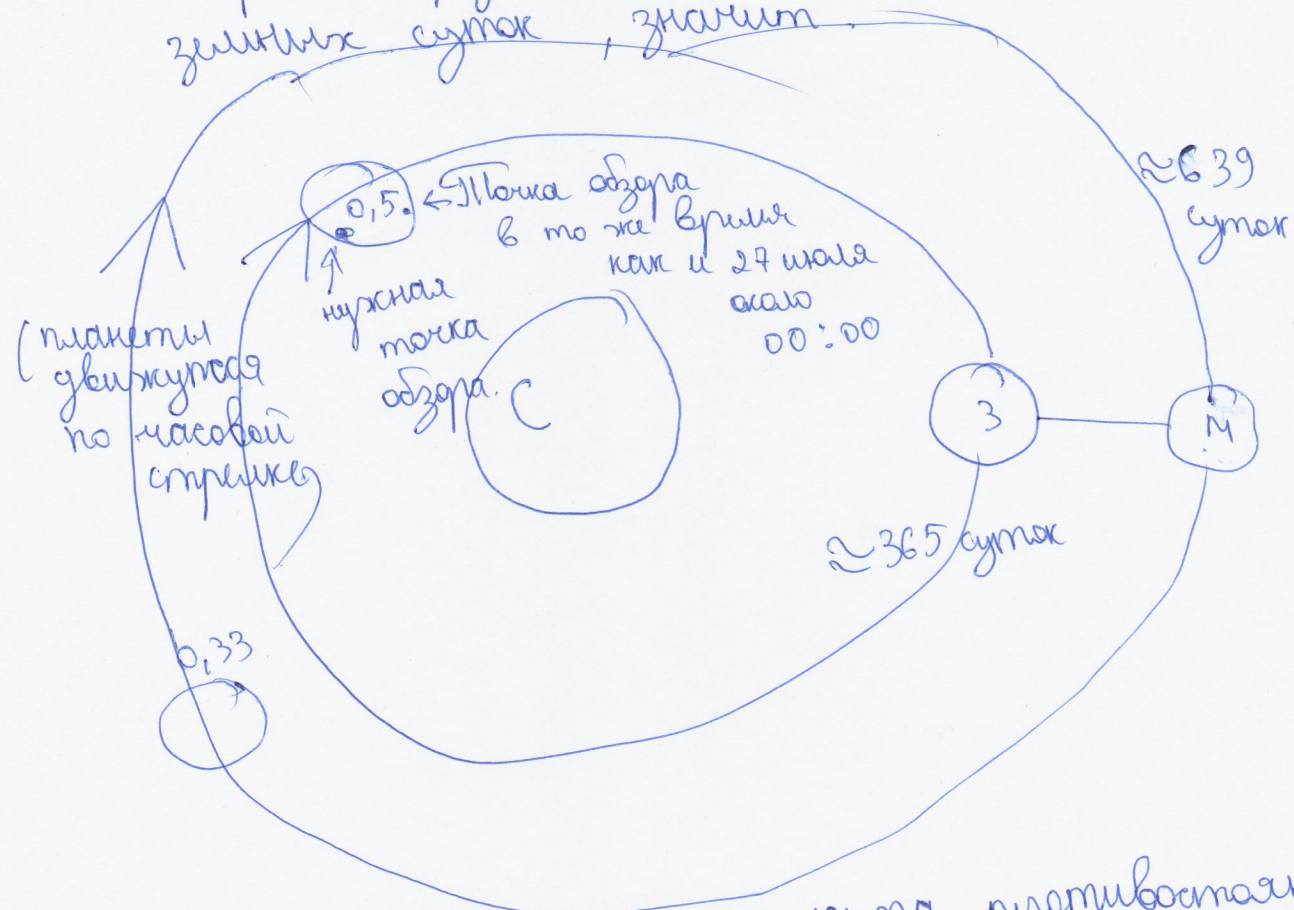 земных суток, значит
≈639
суток
0,5. ← Точка обзора
в то же время
как и 27 июля
около
00:00
нужная
точка
обзора.
(планеты
движутся
по часовой
стрелке)
С
З
М
≈365 суток
0,33
противостоян